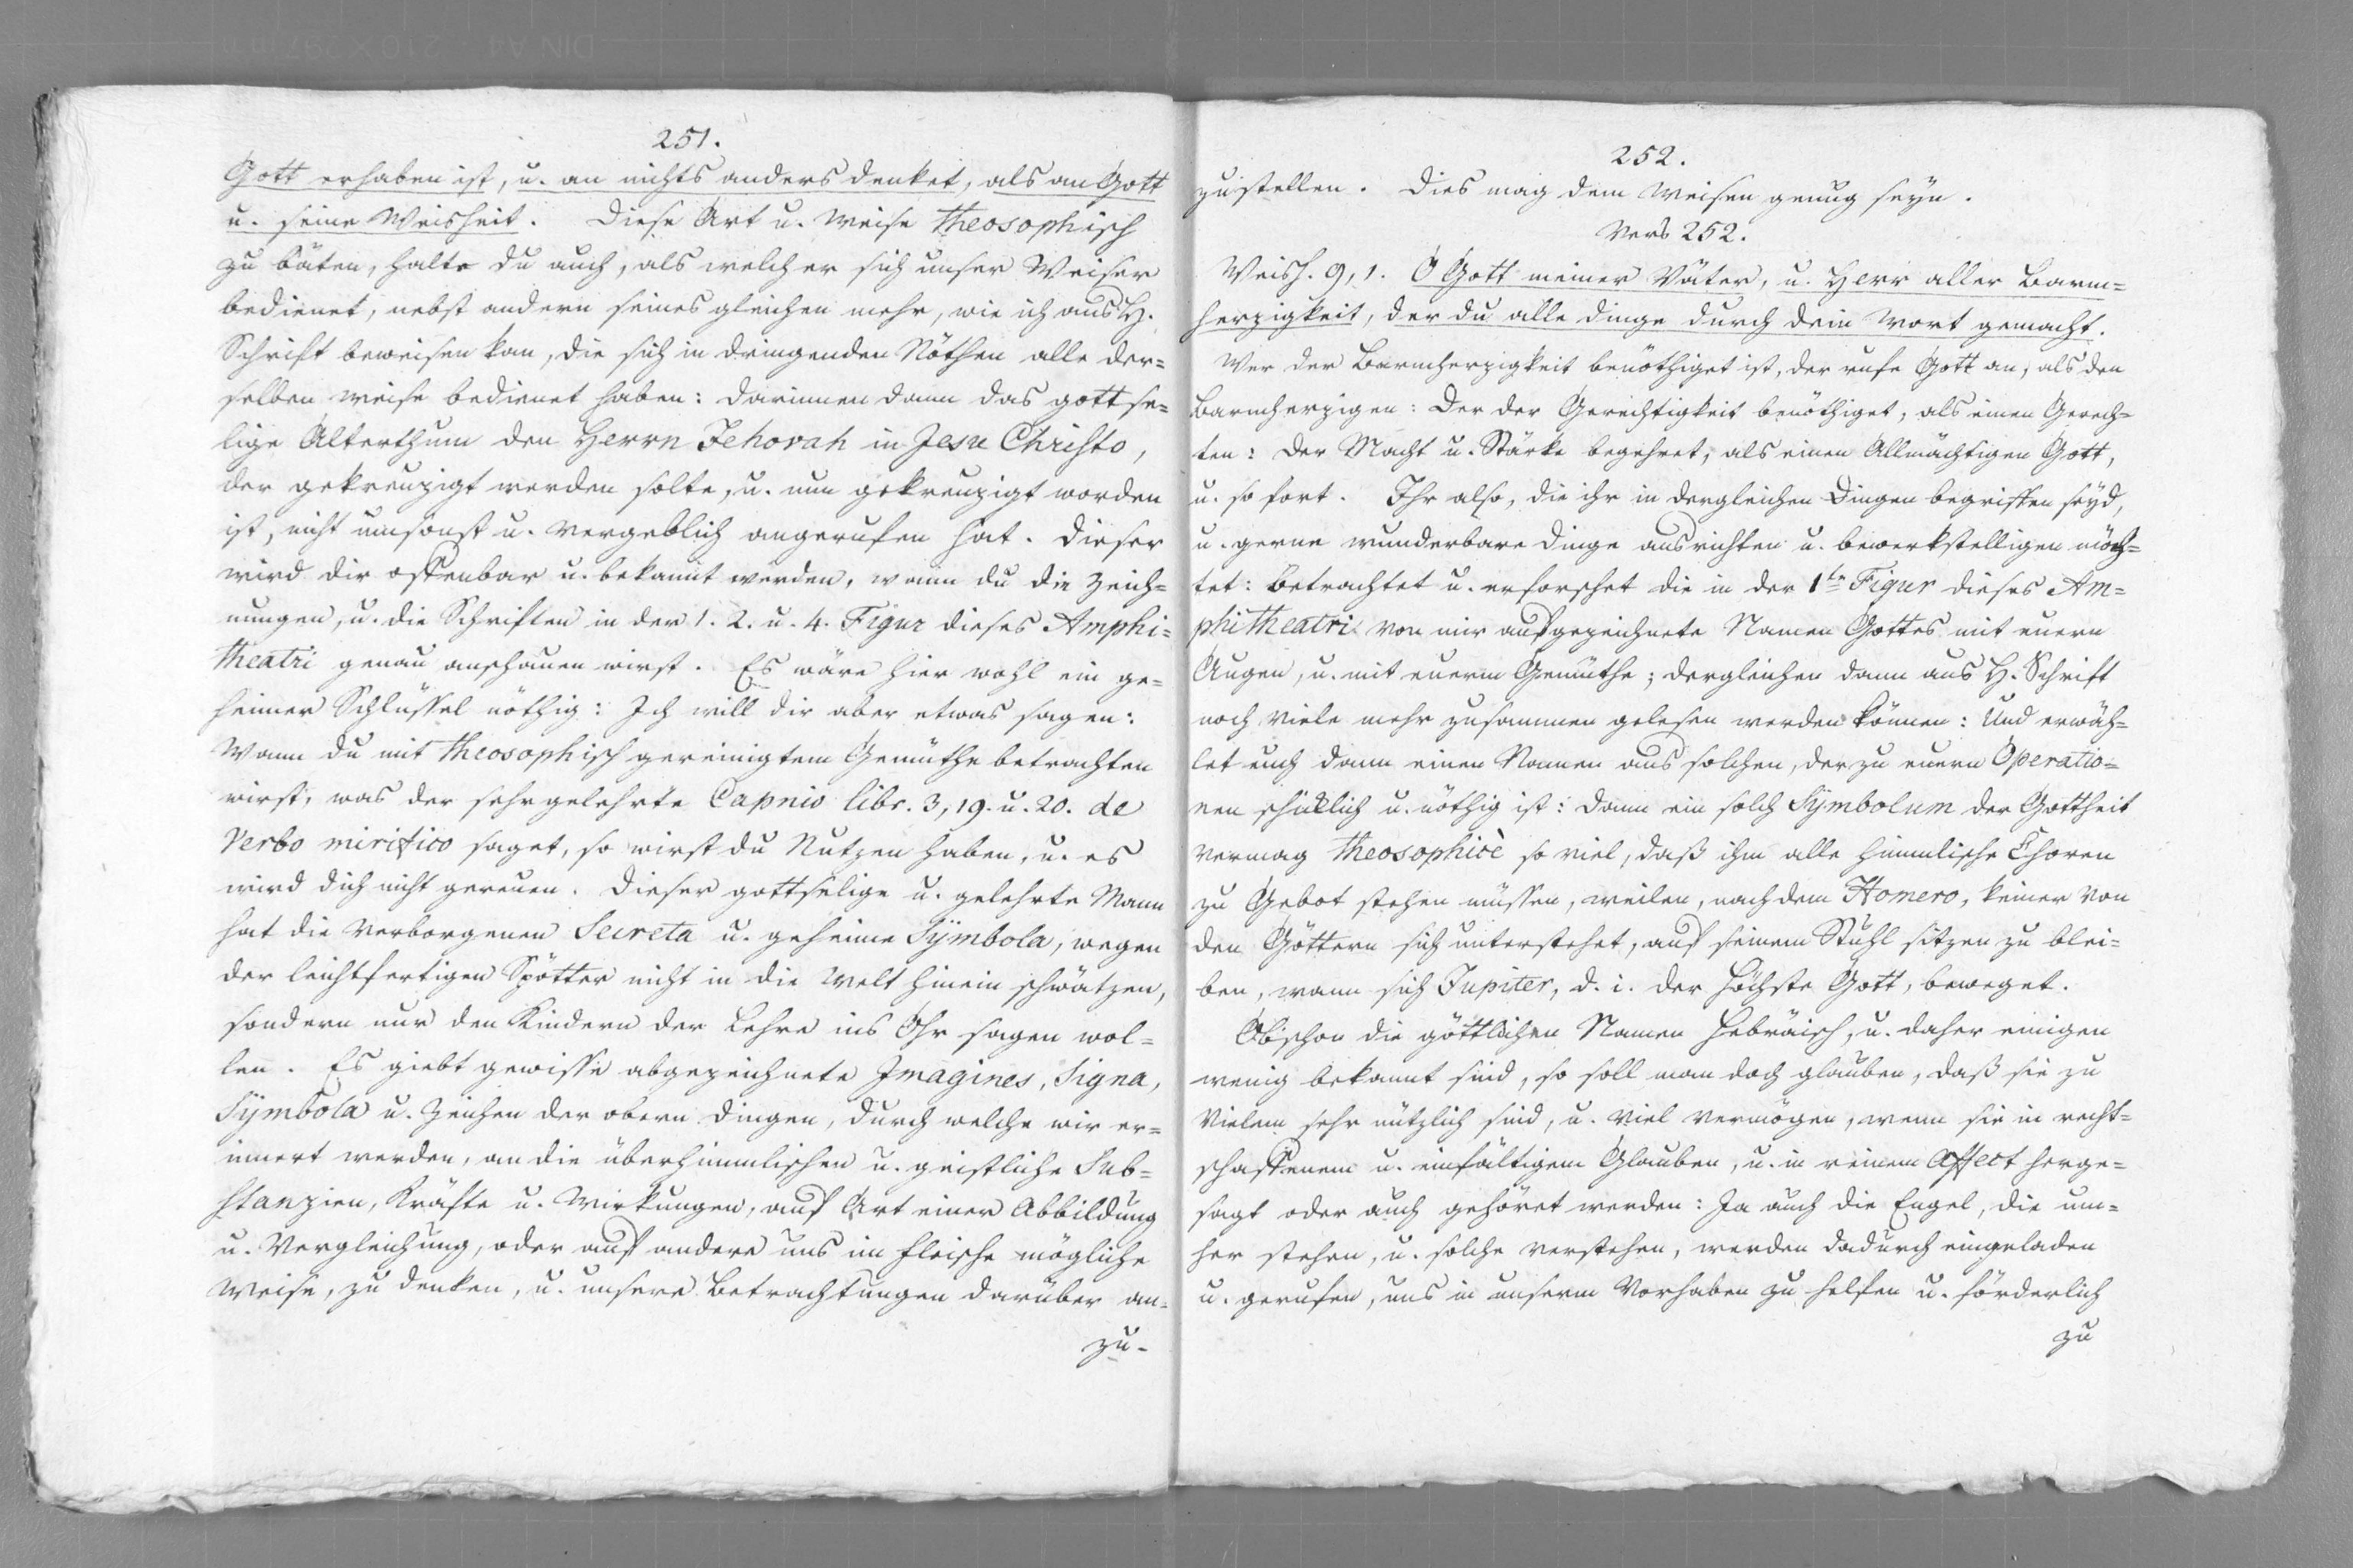 251.
Gott erhaben ist, u. an nichts anders denket, als an Gott
u. seine Weisheit. Diese Art u. Weise theosophisch
zu bäten, halte du auch, als welcher sich unser Weiser
bedienet, nebst andern seines gleichen mehr, wie ich aus H.
Schrift beweisen kan, die sich in dringenden Nöthen alle der=
selben weise bedienet haben: darinnen dann das gottse=
lige Alterthum den Herrn Jehovah in Jesu Christo,
der gekreuzigt werden solte, u. nun gekreuzigt worden
ist, nicht umsonst u. vergeblich angerufen hat. Dieser
wird dir offenbar u. bekannt werden, wann du die Zeich=
nungen, u. die Schriften in der 1. 2. u. 4. Figur dieses Amphi=
theatri genau anschauen wirst. Es wäre hier wohl ein ge=
heimer Schlüssel nöthig: Ich will dir aber etwas sagen:
Wann du mit theosophisch gereinigtem Gemüthe betrachten
wirst, was der sehr gelehrte Capnio libr. 3, 19. u. 20. de
Verbo mirifico saget, so wirst du Nutzen haben, u. es
wird dich nicht gereuen. Dieser gottselige u. gelehrte Mann
hat die verborgenen Secreta u. geheime Sÿmbola, wegen
der leichtfertigen Spötter nicht in die Welt hinein schwätzen,
sondern nur den Kindern der Lehre ins Ohr sagen wol=
len. Es giebt gewisse abgezeichnete Imagines, Signa,
Sÿmbola u. Zeichen der obern Dingen, durch welche wir er=
innert werden, an die überhimmlischen u. geistliche Sub=
stanzien, Kräfte u. Wirkungen, auf Art einer Abbildung
u. Vergleichung, oder auf andere uns im Fleische mögliche
Weise, zu denken, u. unsere Betrachtungen darüber an=
zu-
252.
zustellen. Dies mag dem Weisen genug seyn.
Vers 252.
Weish. 9, 1. O Gott meiner Väter, u. Herr aller Barm=
herzigkeit, der du alle Dinge durch dein Wort gemacht.
Wer der Barmherzigkeit benöthiget ist, der rufe Gott an, als den
Barmherzigen: Der der Gerechtigkeit benöthiget, als einen Gerech=
ten: Der Macht u. Stärke begehret, als einen Allmächtigen Gott,
u. so fort. Ihr also, die ihr in dergleichen Dingen begriffen seyd,
u. gerne wunderbare Dinge ausrichten u. bewerkstelligen möch=
tet: Betrachtet u. erforschet die in der 1tn Figur dieses Am=
phitheatri von mir aufgezeichnete Namen Gottes mit euern
Augen, u. mit euerm Gemüthe; dergleichen dann aus H. Schrift
noch viele mehr zusammen gelesen werden können: Und erwäh=
let euch dann einen Namen aus solchen, der zu euern Operatio=
nen schicklich u. nöthig ist: Dann ein solch Sÿmbolum der Gottheit
vermag theosophicè so viel, daß ihm alle himmlische Choren
zu Gebot stehen müssen, weilen, nach dem Homero, keiner von
den Göttern sich unterstehet, auf seinem Stuhl sitzen zu blei=
ben, wann sich Jupiter, d. i. der höchste Gott, beweget.
Obschon die göttlichen Namen Hebräisch, u. daher einigen
wenig bekannt sind, so soll man doch glauben, daß sie zu
Vielem sehr nützlich sind, u. viel vermögen, wenn sie in recht=
schaffenem u. einfältigem Glauben, u. in reinem Affect herge=
sagt oder auch gehöret werden: Ja auch die Engel, die um=
her stehen, u. solche verstehen, werden dadurch eingeladen
u. gerufen, uns in unserm Vorhaben zu helfen u. förderlich
zu